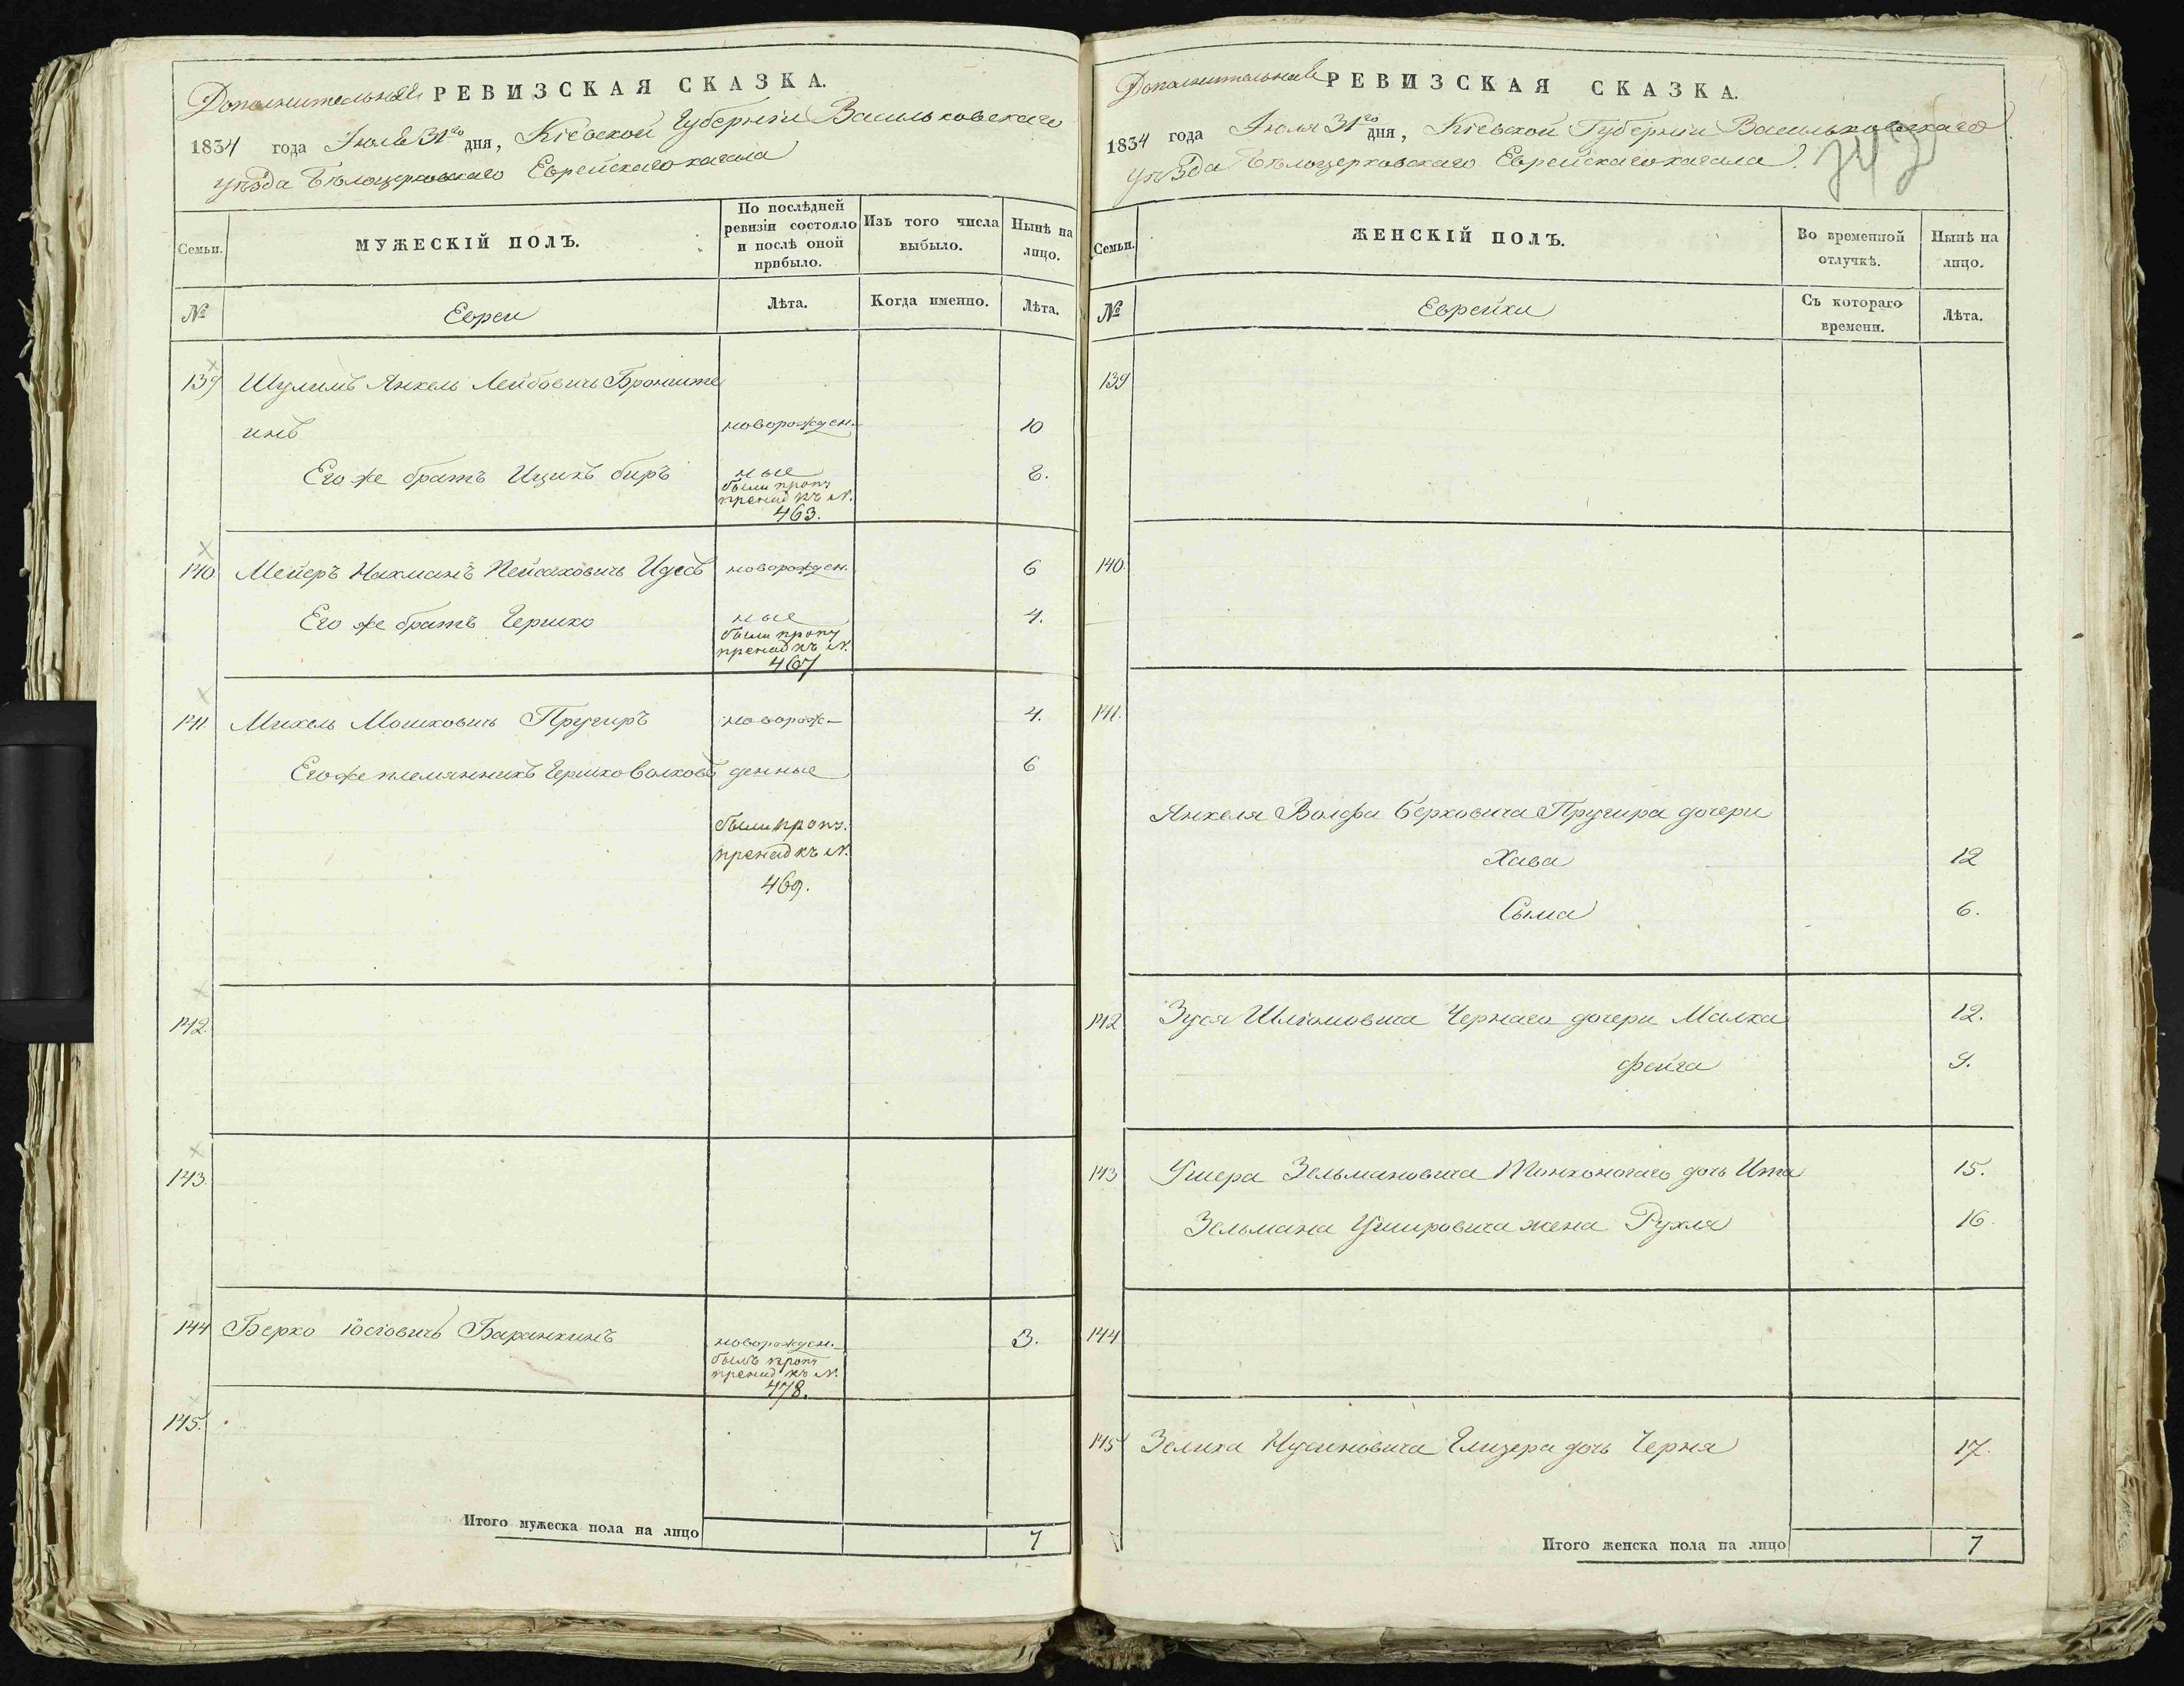 Дополнительная РЕВИЗСКАЯ СКАЗКА.
1834 года Іюля 31го дня, Кіевской Губерніи Васильковскаго
уѣзда Бѣлоцерковскаго Еврейскаго кагала
Семьи.
МУЖЕСКІЙ ПОЛЪ.
По послѣдней
ревизіи состояло
и послѣ оной
прибыло.
Изъ того числа
выбыло.
Нынѣ на
лицо.
№
Евреи
Лѣта.
Когда именно.
Лѣта.
139 Шулимъ Янкель Лейбовичъ Бронште
инъ новорожден- 10
Его же братъ Ицикъ биръ ные 8.
были проп
пренад къ №.
463.
140 Мейеръ Нахманъ Пейсаховичъ Идесъ новорожден. 6
Его же братъ Гершко ные 4.
были проп
пренад къ №.
467
141. Михель Мошковичъ Пругиръ новорож- 4.
Его же племянникъ Гершко Волковъ денные 6
были проп.
пренад къ №.
469.
142.
143.
144 Берко Іосіовичъ Баранкинъ новорожден. 3.
былъ проп
пренад къ №.
478.
145.
Итого мужеска пола на лицо 7
Дополнительная РЕВИЗСКАЯ СКАЗКА.
1834 года Іюля 31го дня, Кіевской Губерніи Васильковскаго
уѣзда Бѣлоцерковскаго Еврейскаго кагала.
Семьи.
ЖЕНСКІЙ ПОЛЪ.
Во временной
отлучкѣ.
Нынѣ на
лицо.
№
Еврейки
Съ котораго
времени.
Лѣта.
139
140.
141.
Янкеля Волфа Берковича Пругира дочери
Хава 12
Сыма 6.
142 Зуся Шліомовича Чернаго дочери Малка 12.
Фейга 9.
143 Ушера Зельмановича Тонконогаго дочь Ита 15.
Зельмана Ушировича жена Рухля 16.
144
145 Зелика Нусиновича Глизера дочь Черня 17.
Итого женска пола на лицо 7